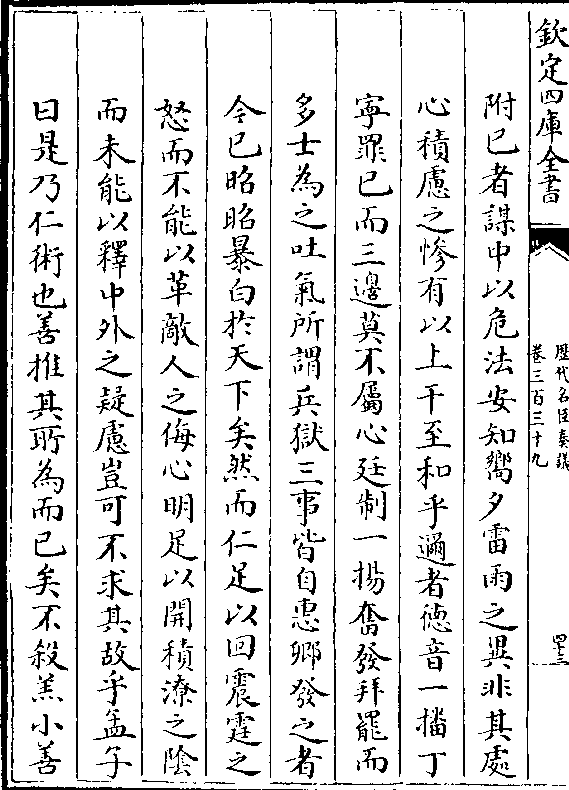 欽定四庫全書
歷代名臣奏議
卷三百三十九
附已者謀中以危法安知嚮夕雷雨之異非其處
心積慮之慘有以上干至和乎邇者德音一播丁
寧罪已而三邊莫不屬心廷制一揚奮發拜罷而
多士為之吐氣所謂兵獄三事皆自惠卿發之者
今已昭昭暴白於天下矣然而仁足以回震霆之
怒而不能以革敵人之侮心明足以開積潦之陰
而未能以釋中外之疑慮豈可不求其故乎孟子
曰是乃仁術也善推其所為而已矣不殺羔小善